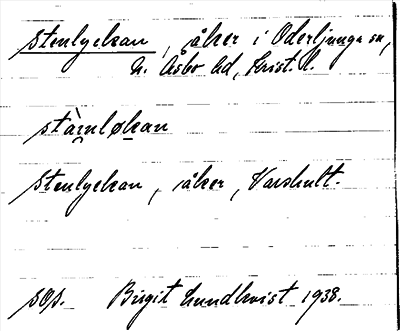 Stenlyckan, åker i Oderljunga sn,
N. Åsbo hd, Krist. l.
Stenlyckan, åker, Varshult.
sOs. Birgit Lundkvist 1938.